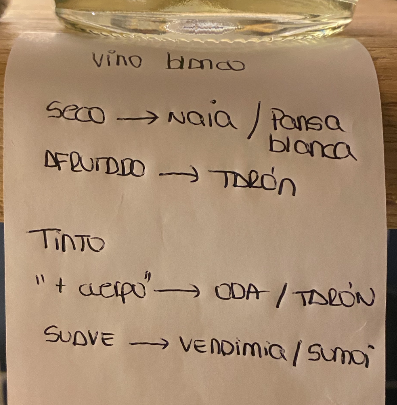 vino blanco
seco → Naia / Pansa
blanca
AFRUTADO → TARÓN
TINTO
"+ cuerpo" → ODA / TARÓN
SUAVE → VENDIMIA / SUMOI